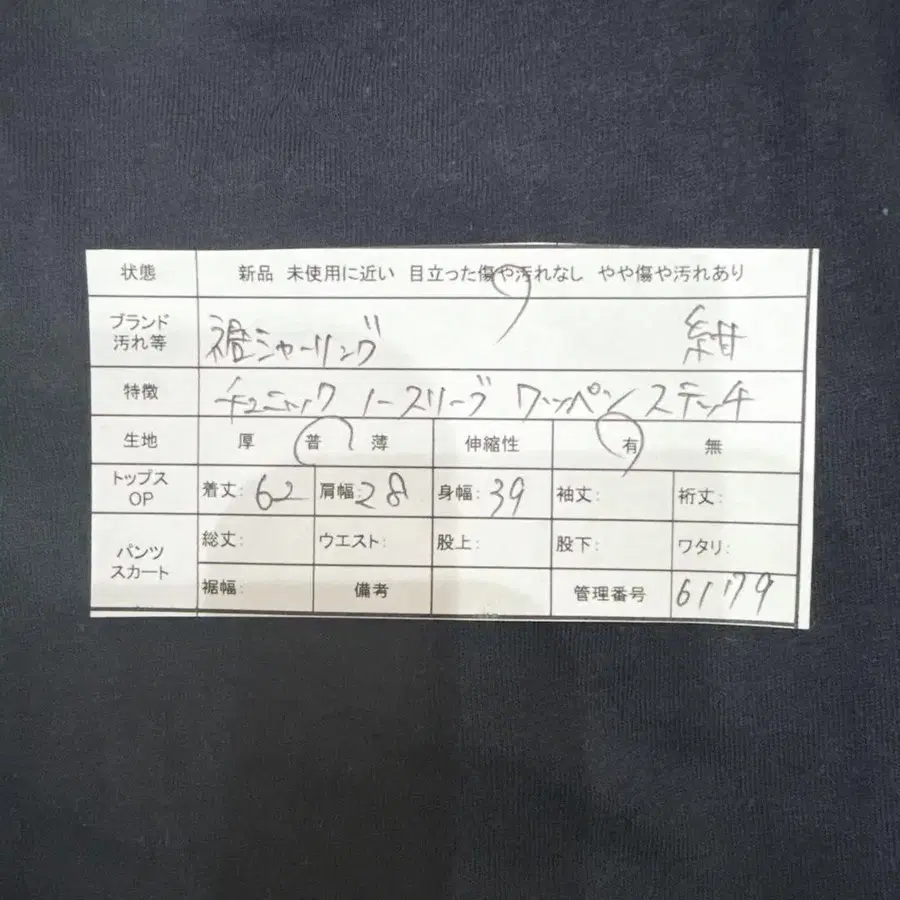 状態 新品 未使用に近い 目立った傷や汚れなし やや傷や汚れあり
ブランド
汚れ等 裾シャーリング 紺
特徴 チュニック ノースリーブ ワッペン ステッチ
生地 厚 普 薄 伸縮性 有 無
トップス
OP 着丈: 62 肩幅: 28 身幅: 39 袖丈: 裄丈:
パンツ
スカート 総丈: ウエスト: 股上: 股下: ワタリ:
裾幅: 備考 管理番号 6179